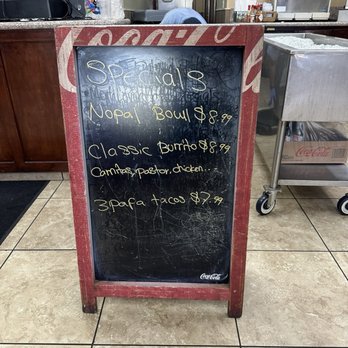 Coca-Cola
Specials
Nopal Bowl $8.99
Classic Burrito $8.99
Carnitas, pastor, chicken...
3 papa tacos $7.99
Coca-Cola
Coca-Cola